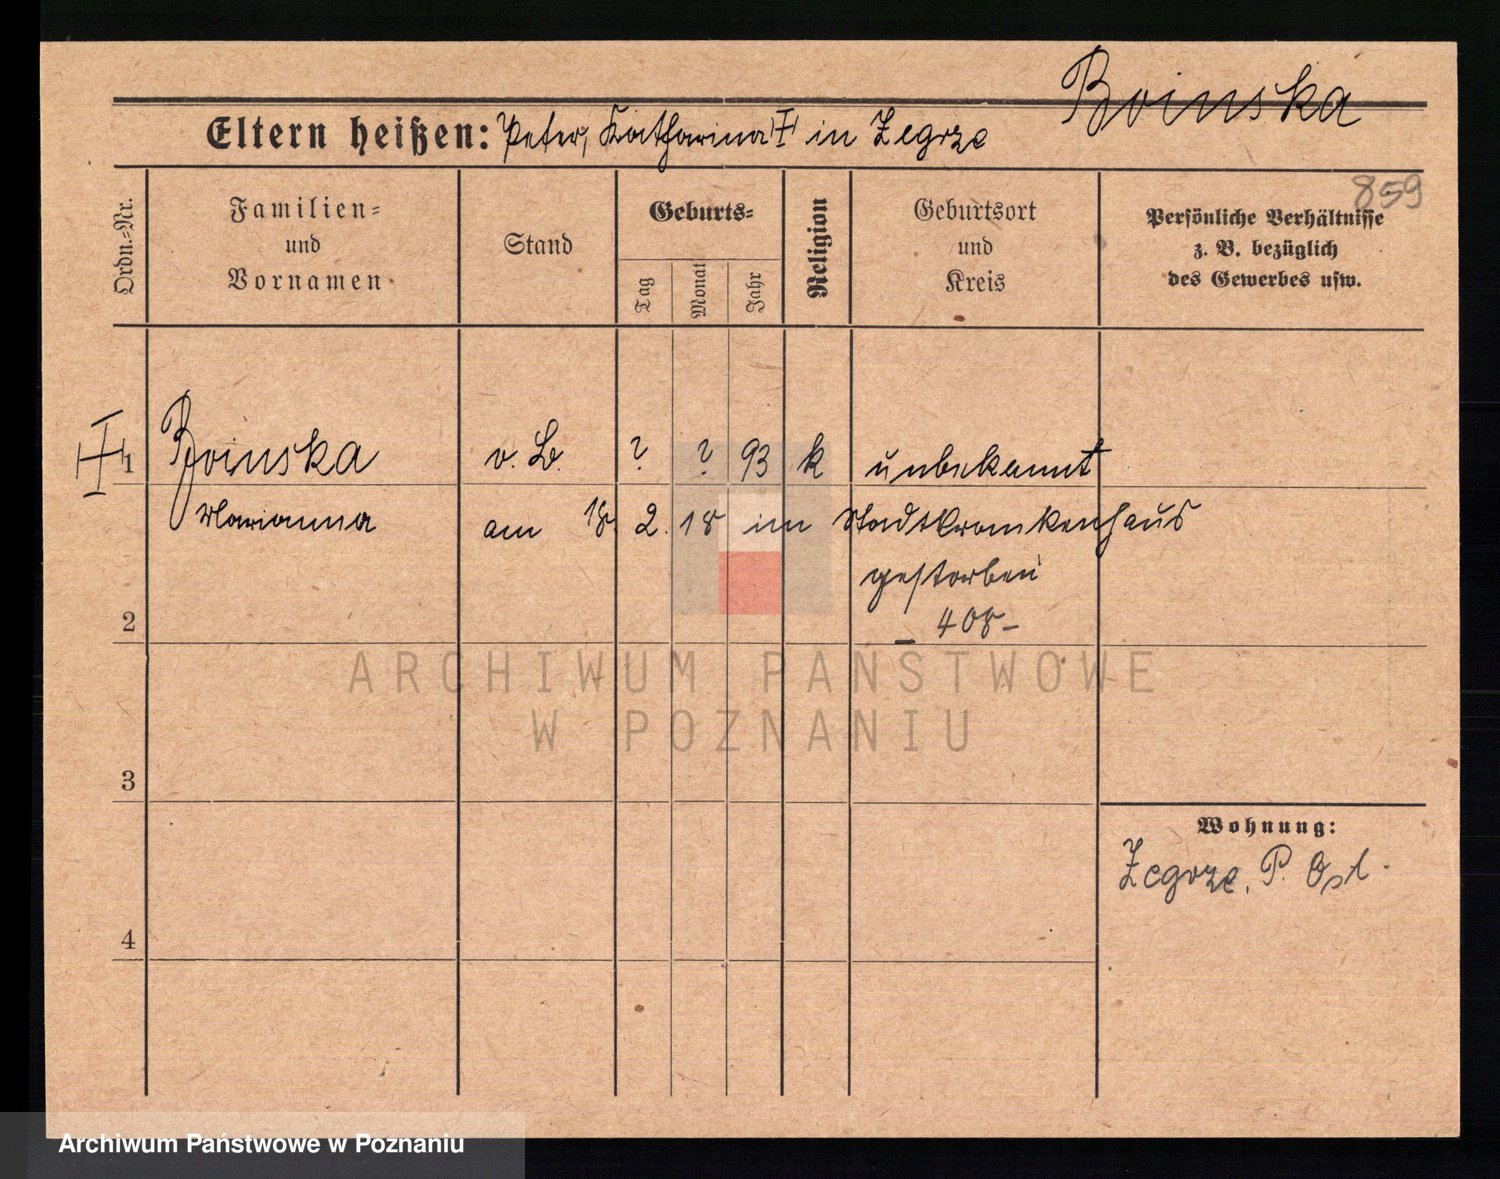 Boinska
Eltern heißen: Peter, Katharina in Zegrze
859
Ordn.-Nr.
Familien-
und
Vornamen
Stand
Geburts-
Tag
Monat
Jahr
Religion
Geburtsort
und
Kreis
Persönliche Verhältnisse
z. B. bezüglich
des Gewerbes usw.
1 Boinska v. B. ? ? 93 k unbekannt
Marianna am 18. 2. 18 im Stadtkrankenhaus
gestorben
2 – 408 –
ARCHIWUM PAŃSTWOWE
W POZNANIU
3
Wohnung:
Zegrze, P. Ost.
4
Archiwum Państwowe w Poznaniu